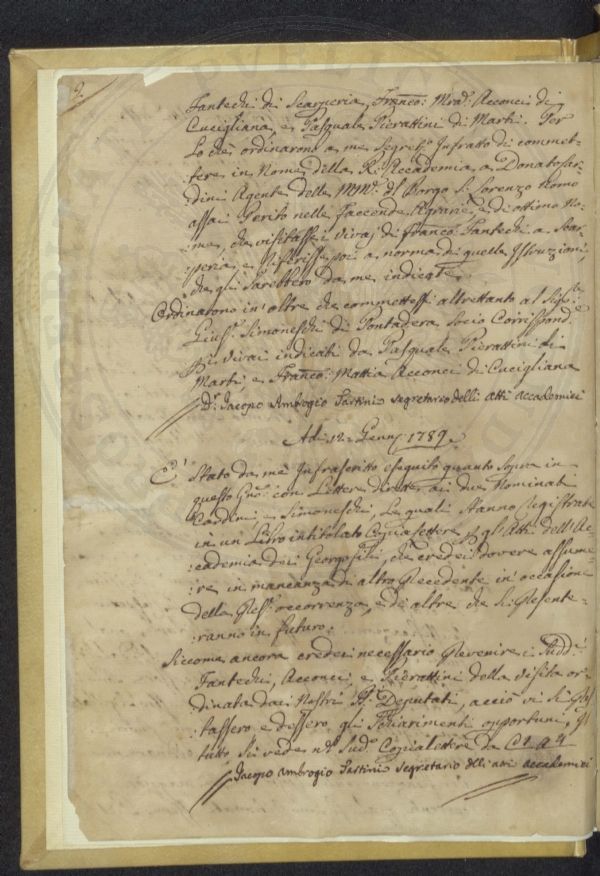 2.
Fantechi di Scarperia, Franco: Mra: Acconci di
Cucigliana, e Pasquale Pierattini di Marti. Per
Lo che ordinarono a me Segret:o Infratto di commet=
tere in Nome della R: Accademia, a Donato Sar=
dini Agente delle MM: di Borgo S: Lorenzo Uomo
assai Perito nelle Faccende Agrarie, e di ottimo No=
me, che visitasse i vivaj di Franco: Fantechi a Scar=
:peria, e Riferisse poi a norma di quelle Istruzioni,
che gli sarebbero da me indicate.
Ordinarono in'oltre che commettessi altrettanto al Sig:re
Gius: Simoneschi di Pontadera Socio Corrispond:e
Pei vivai indicati da Pasquale Pierattini di
Marti, e Franco: Mattia Acconci di Cucigliana
D: Jacopo Ambrogio Tartini segretario delli atti accademici
Adi 12. Genn: 1789.
E' Stato da me Infrascritto eseguito quanto Sopra in
questo Gno: con Lettere dirette ai due Nominati
Sardini e Simoneschi, Le quali Stanno Registrate
in un Libro intitolato Copialettere p gl'Atti dell'Ac=
:cademia dei Georgofili, che credei dovere assume=
:re in mancanza di altro Precedente in occasione
della Pres: occorrenza, e di altre che Si Presente=
:ranno in futuro.
Siccome ancora credei necessario Prevenire i Sudd:i
Fantechi, Acconci e Pierattini della visita or=
dinata dai Nostri SS: Deputati, acciò vi Si Pres=
tassero e dessero gli Schiarimenti opportuni, il
tutto Si vede nel Sud:o Copialettere da C 1. a 4
Jacopo Ambrogio Tartini segretario delli atti accademici